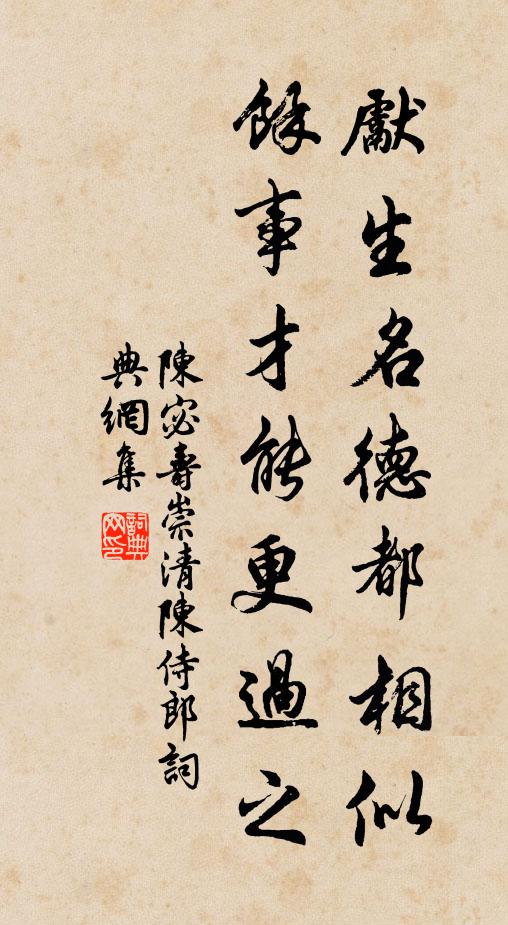 獻生名德都相似
餘事才能更過之
陳宓壽崇清陳侍郎詞
典網集
詞典網印